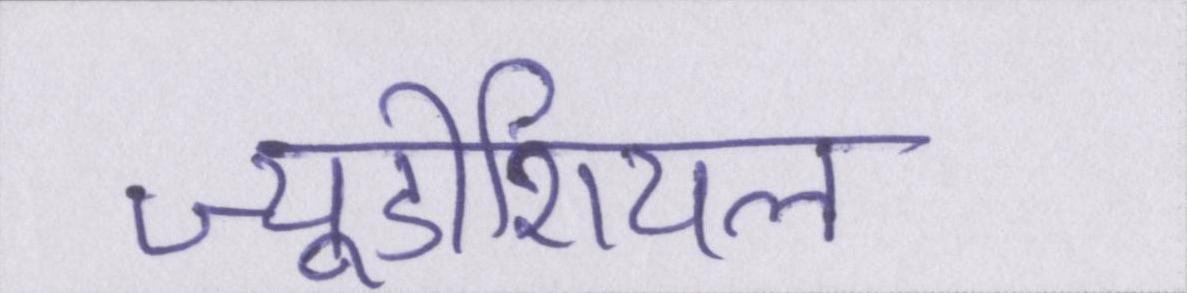 ज्यूडीशियल